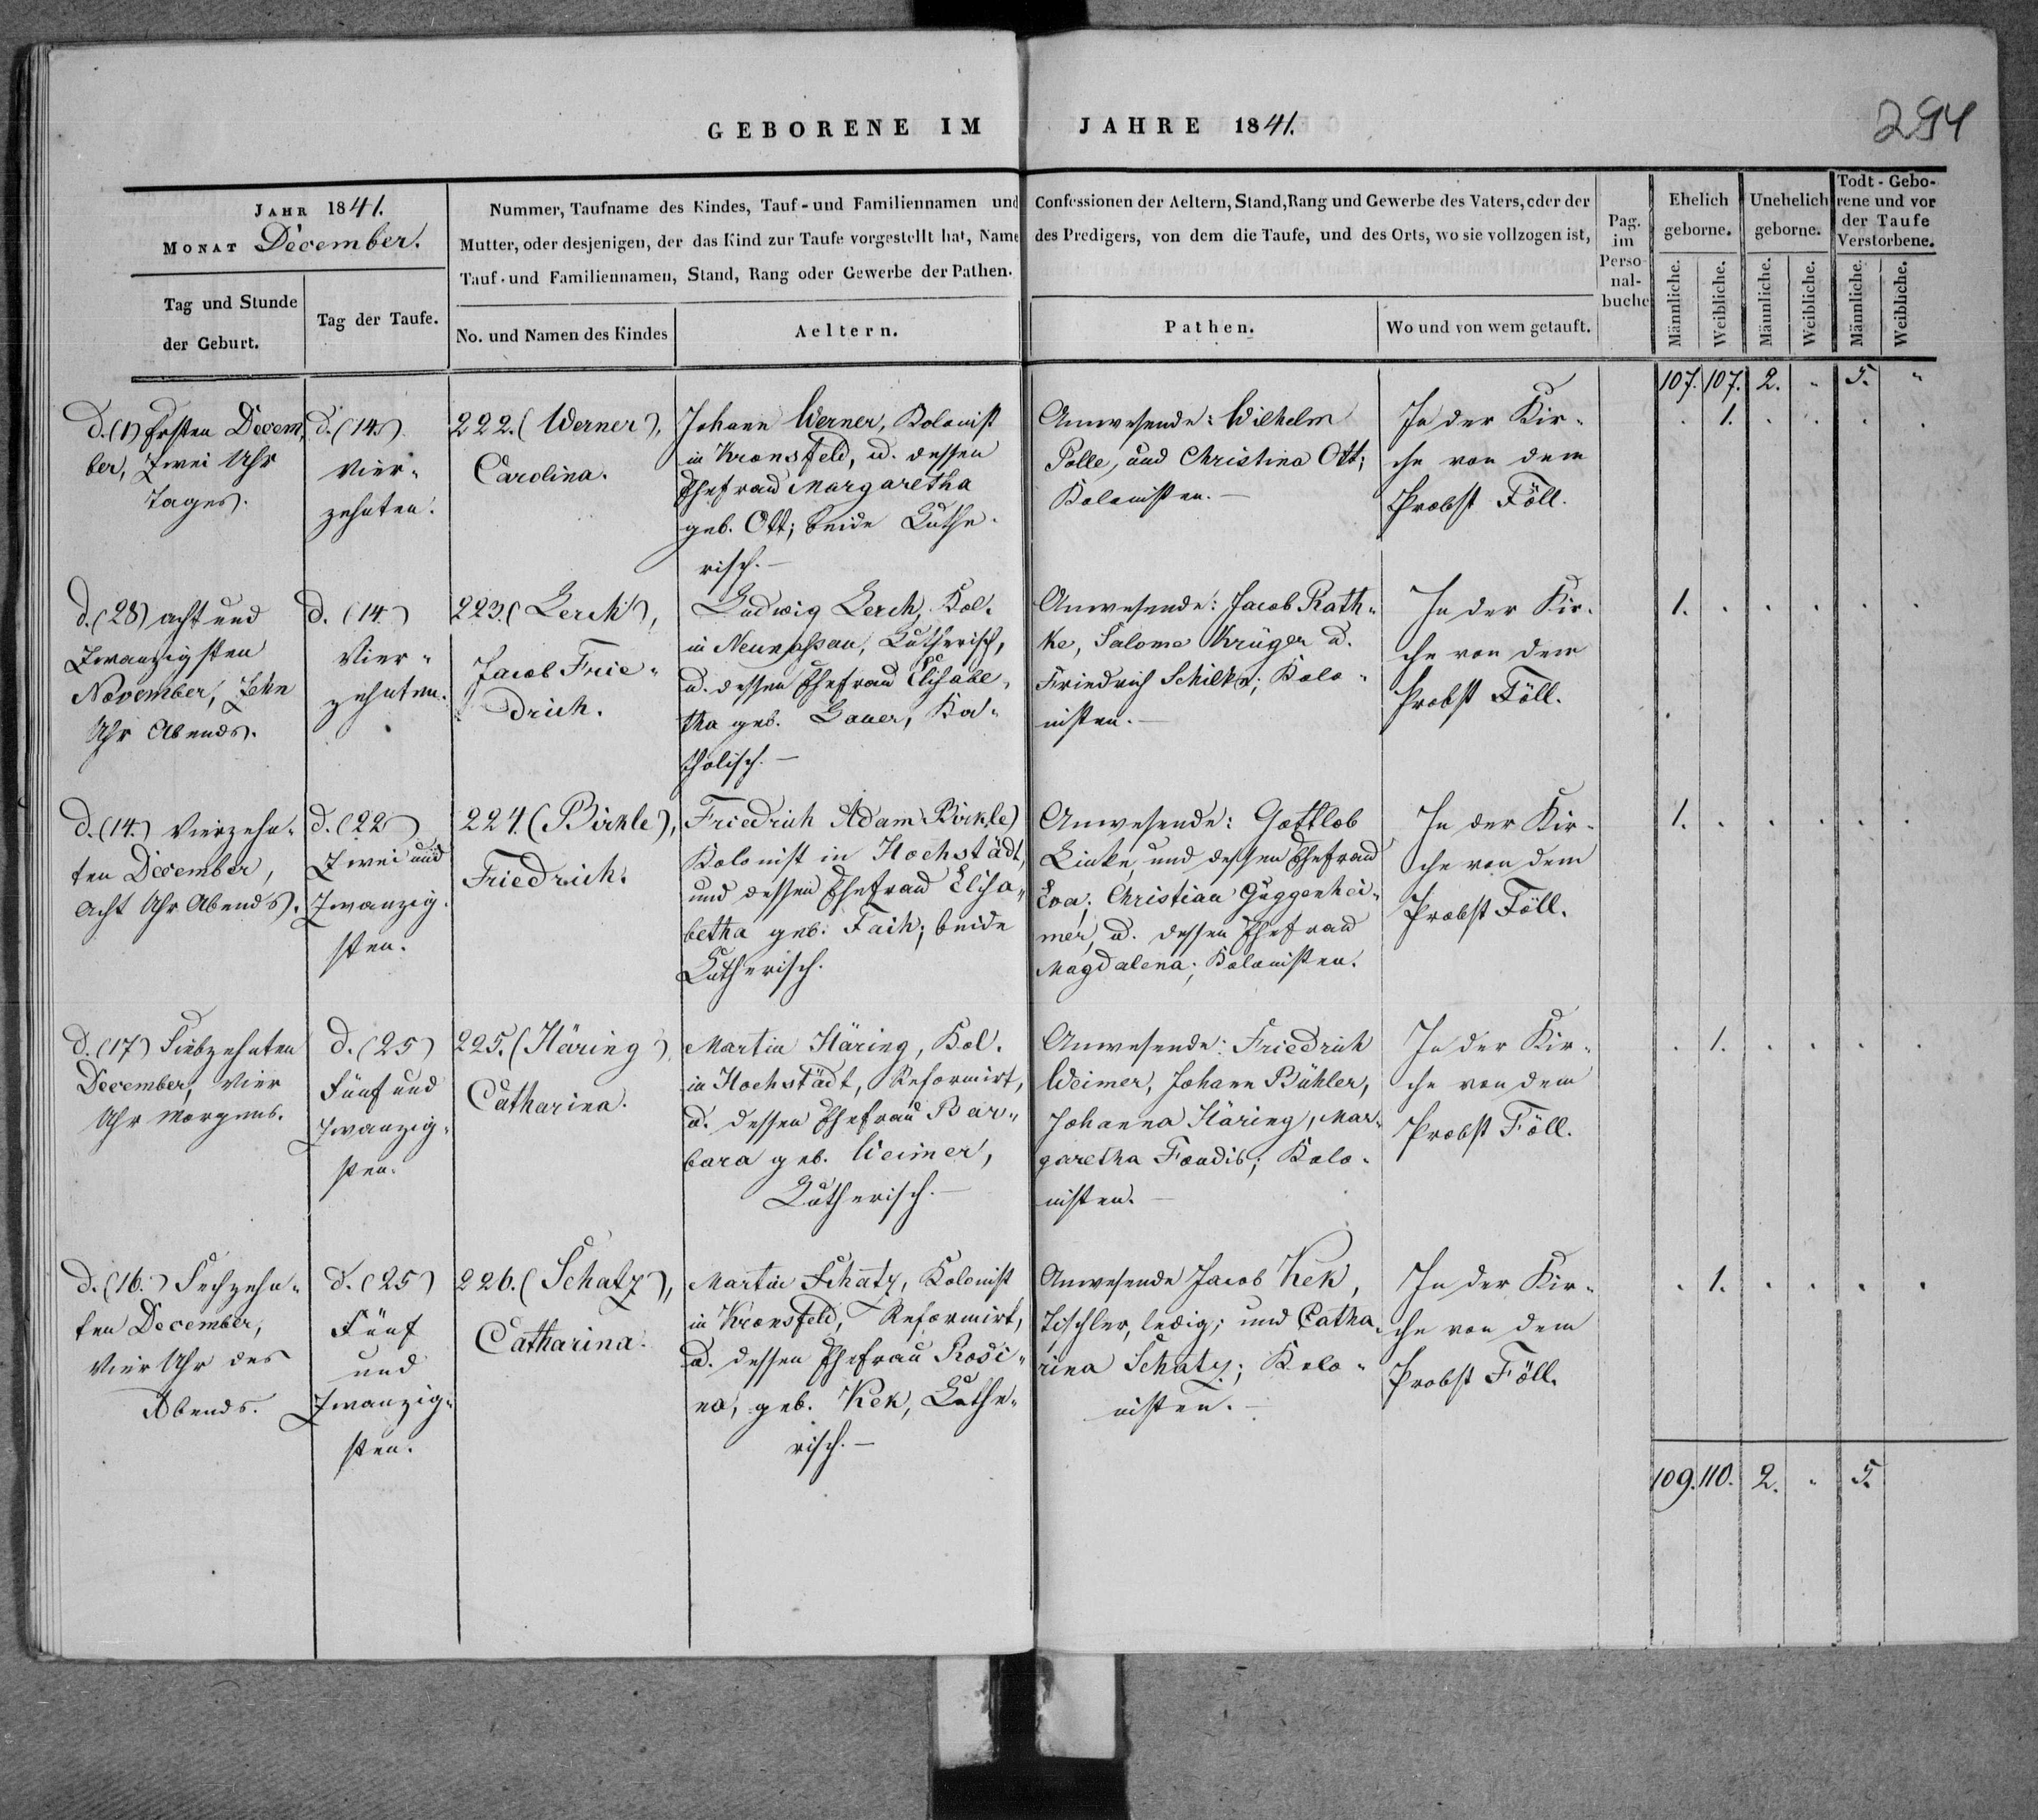 GEBORENE IM JAHRE 1841.
294
JAHR 1841.
MONAT December.
Nummer, Taufname des Kindes, Tauf- und Familiennamen und
Mutter, oder desjenigen, der das Kind zur Taufe vorgestellt hat, Name
Tauf- und Familiennamen, Stand, Rang oder Gewerbe der Pathen.
Confessionen der Aeltern, Stand, Rang und Gewerbe des Vaters, oder der
des Predigers, von dem die Taufe, und des Orts, wo sie vollzogen ist,
Pag.
im
Perso-
nal-
buche
Ehelich
geborne.
Unehelich
geborne.
Todt-Gebo-
rene und vor
der Taufe
Verstorbene.
Tag und Stunde
der Geburt.
Tag der Taufe.
No. und Namen des Kindes
Aeltern.
Pathen.
Wo und von wem getauft.
Männliche.
Weibliche.
Männliche.
Weibliche.
Männliche.
Weibliche.
107. 107. 2. " 5. "
d. (1) Ersten Decem,
ber, Zwei Uhr
Tages.
d. (14.)
Vier-
zehnten.
222. (Werner),
Carolina.
Johann Werner, Kolonist
in Kronsfeld, u. dessen
Ehefrau Margaretha
geb. Ott; beide Luthe-
risch. —
Anwesende: Wilhelm
Polle, und Christina Ott;
Kolonisten. —
In der Kir-
che von dem
Probst Föll.
. 1. . . . .
d. (28) acht und
Zwanzigsten
November, Zehn
Uhr Abends.
d. (14.)
Vier-
zehnten.
223. (Lerch),
Jacob Frie-
drich.
Ludwig Lerch, Kol.
in Neunassau, Lutherisch,
u. dessen Ehefrau Elisabe-
tha geb. Gauer, Ka-
tholisch. —
Anwesende: Jacob Rath-
ke, Salome Krüger u.
Friedrich Schilke; Kolo-
nisten. —
In der Kir-
che von dem
Probst Föll.
1. . . . . .
d. (14.) Vierzehn-
ten December,
Acht Uhr Abends.
d. (22)
Zwei und
Zwanzig-
sten.
224. (Birkle),
Friedrich.
Friedrich Adam Birkle,
Kolonist in Hochstädt,
und dessen Ehefrau Elisa-
betha geb. Faih; beide
Lutherisch.
Anwesende: Gottlob
Linke, und dessen Ehefrau
Eva; Christian Guggenhei-
mer, u. dessen Ehefrau
Magdalena; Kolonisten.
In der Kir-
che von dem
Probst Föll.
1. . . . . .
d. (17) Siebzehnten
December, Vier
Uhr Morgens.
d. (25)
Fünf und
Zwanzig-
sten.
225. (Häring),
Catharina.
Martin Häring, Kol.
in Hochstädt, Reformirt,
u. dessen Ehefrau Bar-
bara geb. Weimer,
Lutherisch. —
Anwesende: Friedrich
Weimer, Johann Bühler,
Johanna Häring, Mar-
garetha; Kolo-
nisten. —
In der Kir-
che von dem
Probst Föll.
. 1. . . . .
d. (16.) Sechzehn-
ten December,
Vier Uhr des
Abends.
d. (25)
Fünf
und
Zwanzig-
sten.
226. (Schatz),
Catharina.
Martin Schatz, Kolonist
in Kronsfeld, Reformirt,
u. dessen Ehefrau Rosi-
na, geb. Kek, Luthe-
risch. —
Anwesende Jacob Kek,
Tischler, ledig; und Catha-
rina Schatz; Kolo-
nisten. —
In der Kir-
che von dem
Probst Föll.
. 1. . . . .
109. 110. 2. " 5.